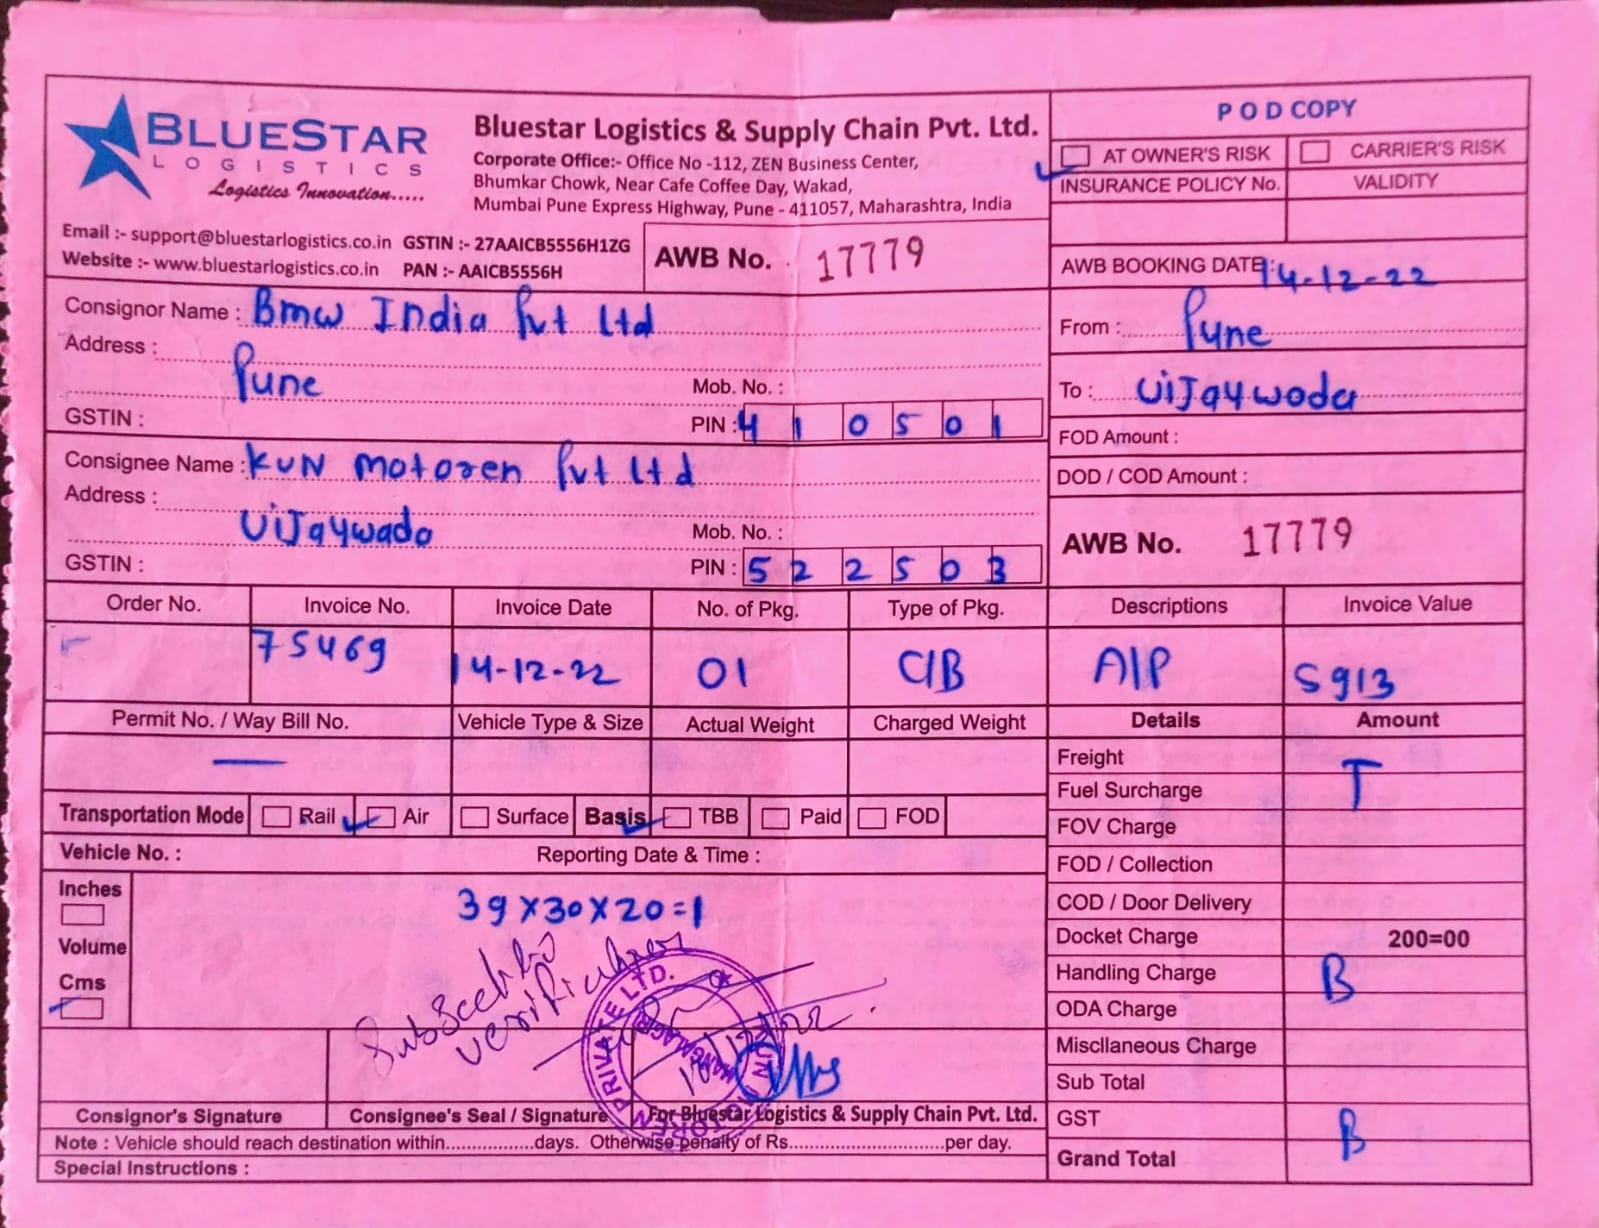 BLUESTAR
LOGISTICS
Logistics Innovation.....
Bluestar Logistics & Supply Chain Pvt. Ltd.
Corporate Office:- Office No -112, ZEN Business Center,
Bhumkar Chowk, Near Cafe Coffee Day, Wakad,
Mumbai Pune Express Highway, Pune - 411057, Maharashtra, India
Email :- support@bluestarlogistics.co.in GSTIN :- 27AAICB5556H1ZG
Website :- www.bluestarlogistics.co.in PAN :- AAICB5556H
AWB No. 17779
POD COPY
AT OWNER'S RISK CARRIER'S RISK
INSURANCE POLICY No. VALIDITY
AWB BOOKING DATE: 14-12-22
From : Pune
To : Vijaywada
FOD Amount :
DOD / COD Amount :
AWB No. 17779
Consignor Name : Bmw India Pvt Ltd
Address :
Pune Mob. No. :
GSTIN : PIN : 410501
Consignee Name : KUN Motoren Pvt Ltd
Address :
Vijaywada Mob. No. :
GSTIN : PIN : 522503
Order No. Invoice No. Invoice Date No. of Pkg. Type of Pkg. Descriptions Invoice Value
- 75469 14-12-22 01 C/B A/P 5913
Permit No. / Way Bill No. Vehicle Type & Size Actual Weight Charged Weight
—
Transportation Mode Rail Air Surface Basis TBB Paid FOD
Vehicle No. : Reporting Date & Time :
Inches
Volume
Cms
39x30x20=1
KUN MOTOREN PRIVATE LTD.
MANGALAGIRI
Consignor's Signature Consignee's Seal / Signature For Bluestar Logistics & Supply Chain Pvt. Ltd.
Note : Vehicle should reach destination within................days. Otherwise penalty of Rs............................per day.
Special Instructions :
Details Amount
Freight
T
Fuel Surcharge
FOV Charge
FOD / Collection
COD / Door Delivery
Docket Charge 200=00
Handling Charge B
ODA Charge
Miscllaneous Charge
Sub Total
GST
B
Grand Total